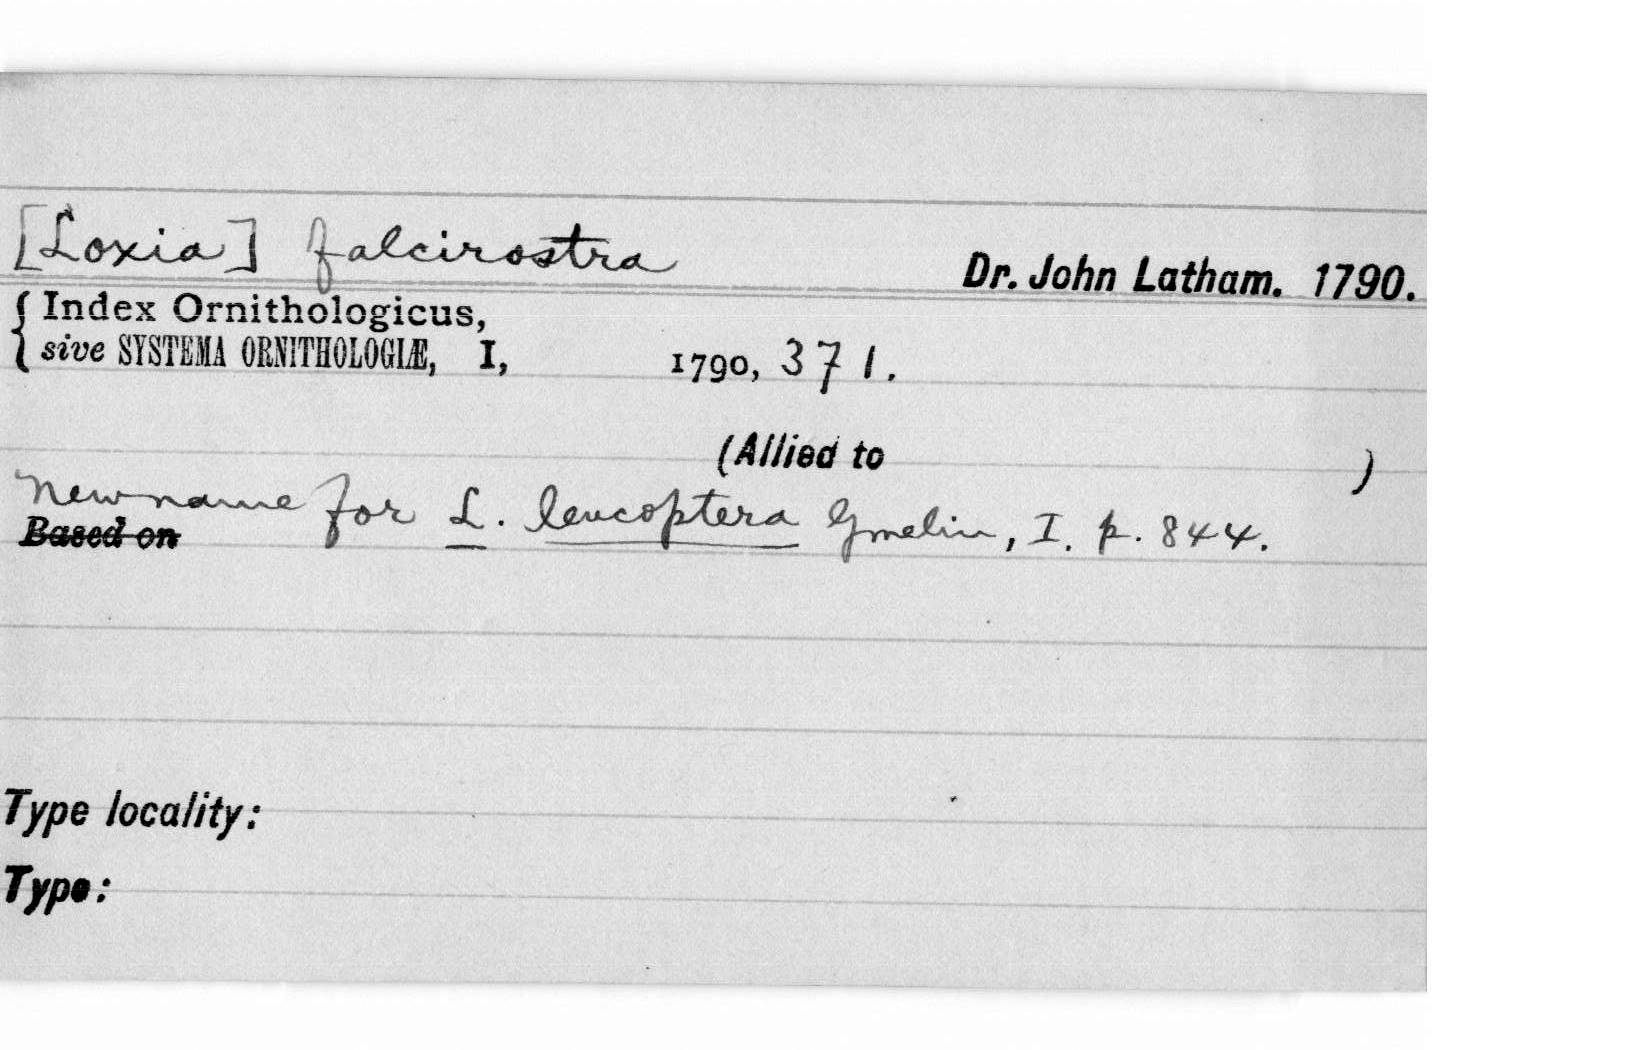 [Loxia] falcirostra
Dr. John Latham. 1790.
{ Index Ornithologicus,
sive SYSTEMA ORNITHOLOGIÆ, I, 1790, 371.
(Allied to )
New name for L. leucoptera Gmelin, I. p. 844.
Based on
Type locality:
Type: